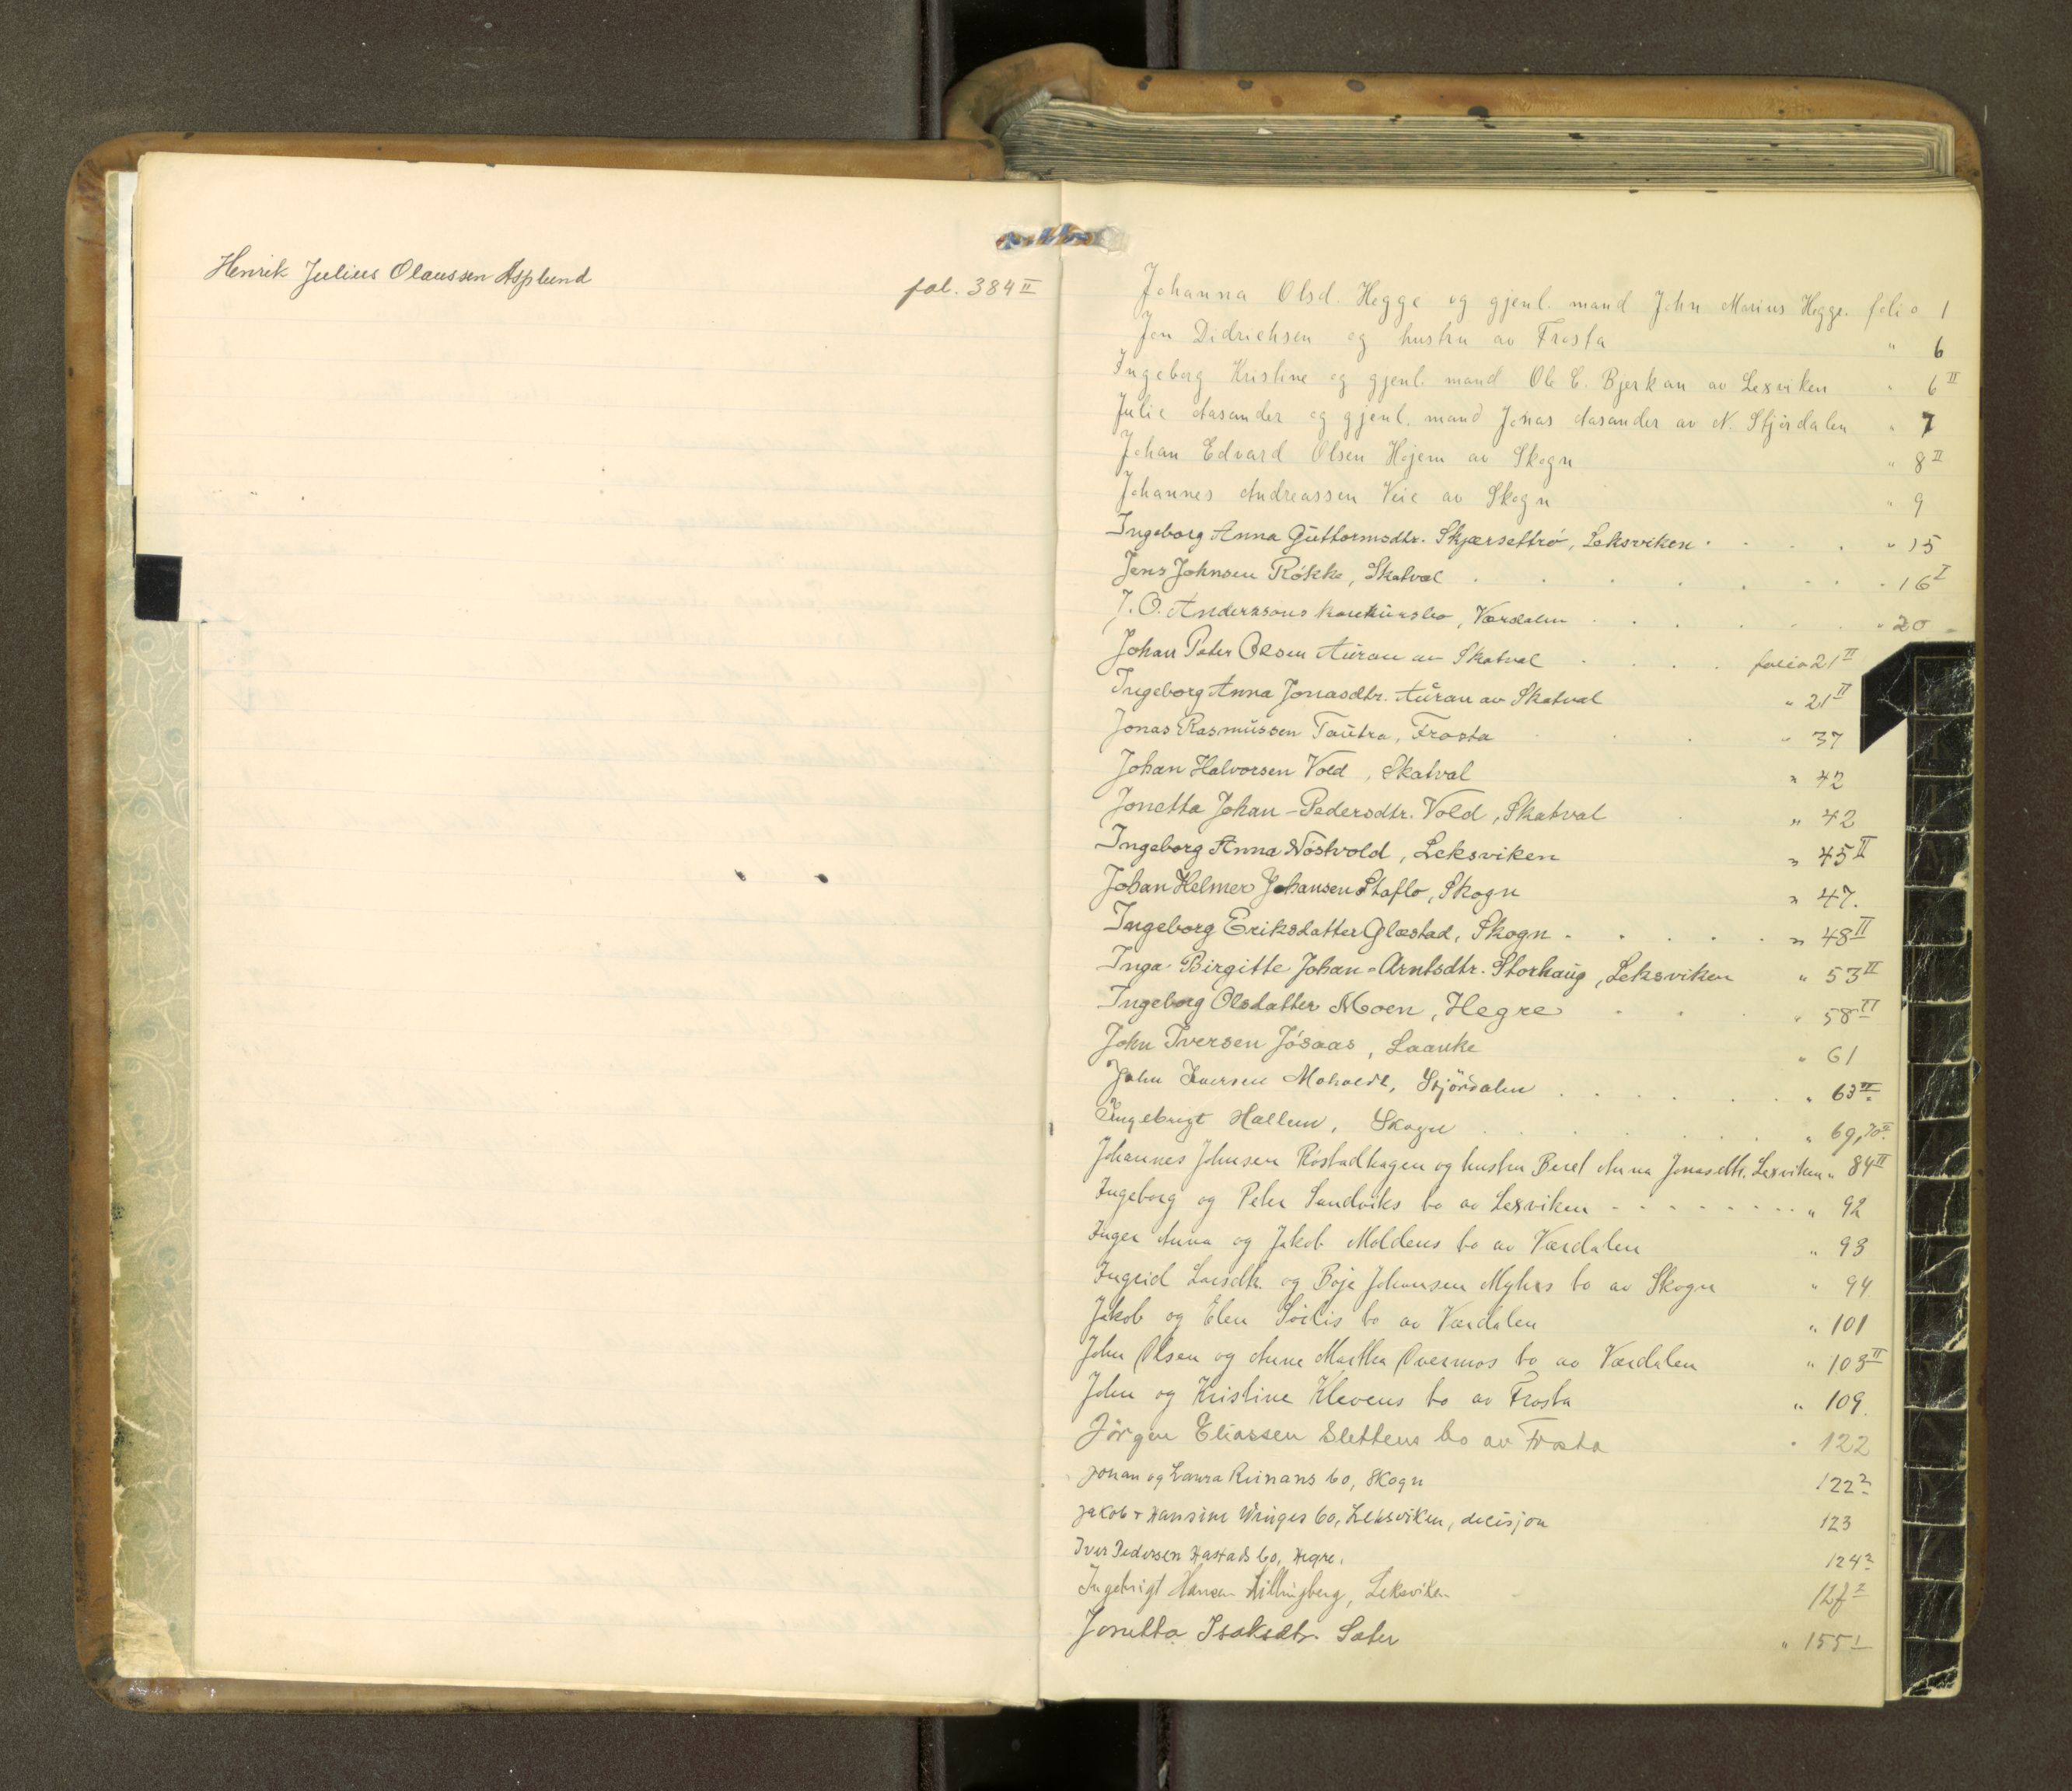 Henrik Julius Olaussen Asplund fol. 384 II
Johanna Olsd. Hegge og gjenl. mand John Marius Hegge. folio 1
Jon Didrichsen og hustru av Frosta " 6
Ingeborg Kristine og gjenl. mand Ole C. Bjerkan av Lexviken " 6 II
Julie Aasander og gjenl. mand Jonas Aasander av N. Stjørdalen " 7
Johan Edvard Olsen Hojem av Skogn " 8 II
Johannes Andreassen Veie av Skogn " 9
Ingeborg Anna Guttormsdtr. Skjærsettrø, Leksviken " 15
Jens Johnsen Røkke, Skatval " 16 I
J. O. Anderssons konkursbo, Værdalen " 20
Johan Peter Olsen Auran av Skatval folio 21 II
Ingeborg Anna Jonasdtr. Auran av Skatval " 21 II
Jonas Rasmussen Tautra, Frosta " 37
Johan Halvorsen Vold, Skatval " 42
Jonetta Johan-Pedersdtr. Vold, Skatval " 42
Ingeborg Anna Nøstvold, Leksviken " 45 II
Johan Helmer Johansen Staflo, Skogn " 47.
Ingeborg Eriksdatter Glæstad, Skogn " 48 II
Inga Birgitte Johan-Arntsdtr. Storhaug, Leksviken " 53 II
Ingeborg Olsdatter Moen, Hegre " 58 II
John Iversen Jøsaas, Laanke " 61
John Iversen Moholdt, Stjördalen " 63 II
Ingebrigt Hallem, Skogn " 69, 70 II
Johannes Johnsen Røstadhagen og hustru Beret Anna Jonasdtr. Lexviken " 84 II
Ingeborg og Peter Sandviks bo av Lexviken " 92
Inger Anna og Jakob Moldens bo av Værdalen " 93
Ingrid Larsdtr. og Boje Johansen Myhrs bo av Skogn " 94
Jakob og Elen bo av Værdalen " 101
John Olsen og Anne Martha Overmos bo av Værdalen " 103 II
John og Kristine Klevens bo av Frosta " 109.
Jörgen Eliassen Slettens bo av Frosta " 122
Johan og Laura Reinans bo, Skogn 122 2
Jakob + Hansine Winges bo, Leksviken, decisjon 123
Iver Pedersen Hastads bo, Hegre. 124 2
Ingebrigt Hansen Killingberg, Leksviken 127 2
Jonetta Isaksdtr. Sæter " 155 1